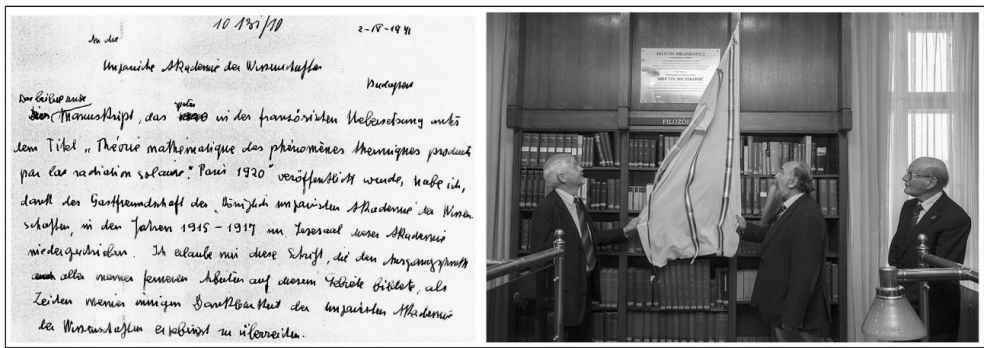 10 131/10
2-IV-1941
An die
Ungarische Akademie der Wissenschaften
Budapest
Das beiliegende
Manuskript, das später in der französischen Uebersetzung unter
dem Titel „Théorie mathématique des phénomènes thermiques produits
par la radiation solaire." Paris 1920" veröffentlicht wurde, habe ich,
dank der Gastfreundschaft der „Königlich ungarischen Akademie" der Wissen-
schaften, in den Jahren 1915-1917 im Lesesaal dieser Akademie
niedergeschrieben. Ich erlaube mir diese Schrift, die den Ausgangspunkt
aller meiner ferneren Arbeiten auf diesem Gebiete bildete, als
Zeichen meiner innigen Dankbarkeit der ungarischen Akademie
der Wissenschaften ergebenst zu überreichen.
MILUTIN MILANKOVIĆ
FILOZÓF